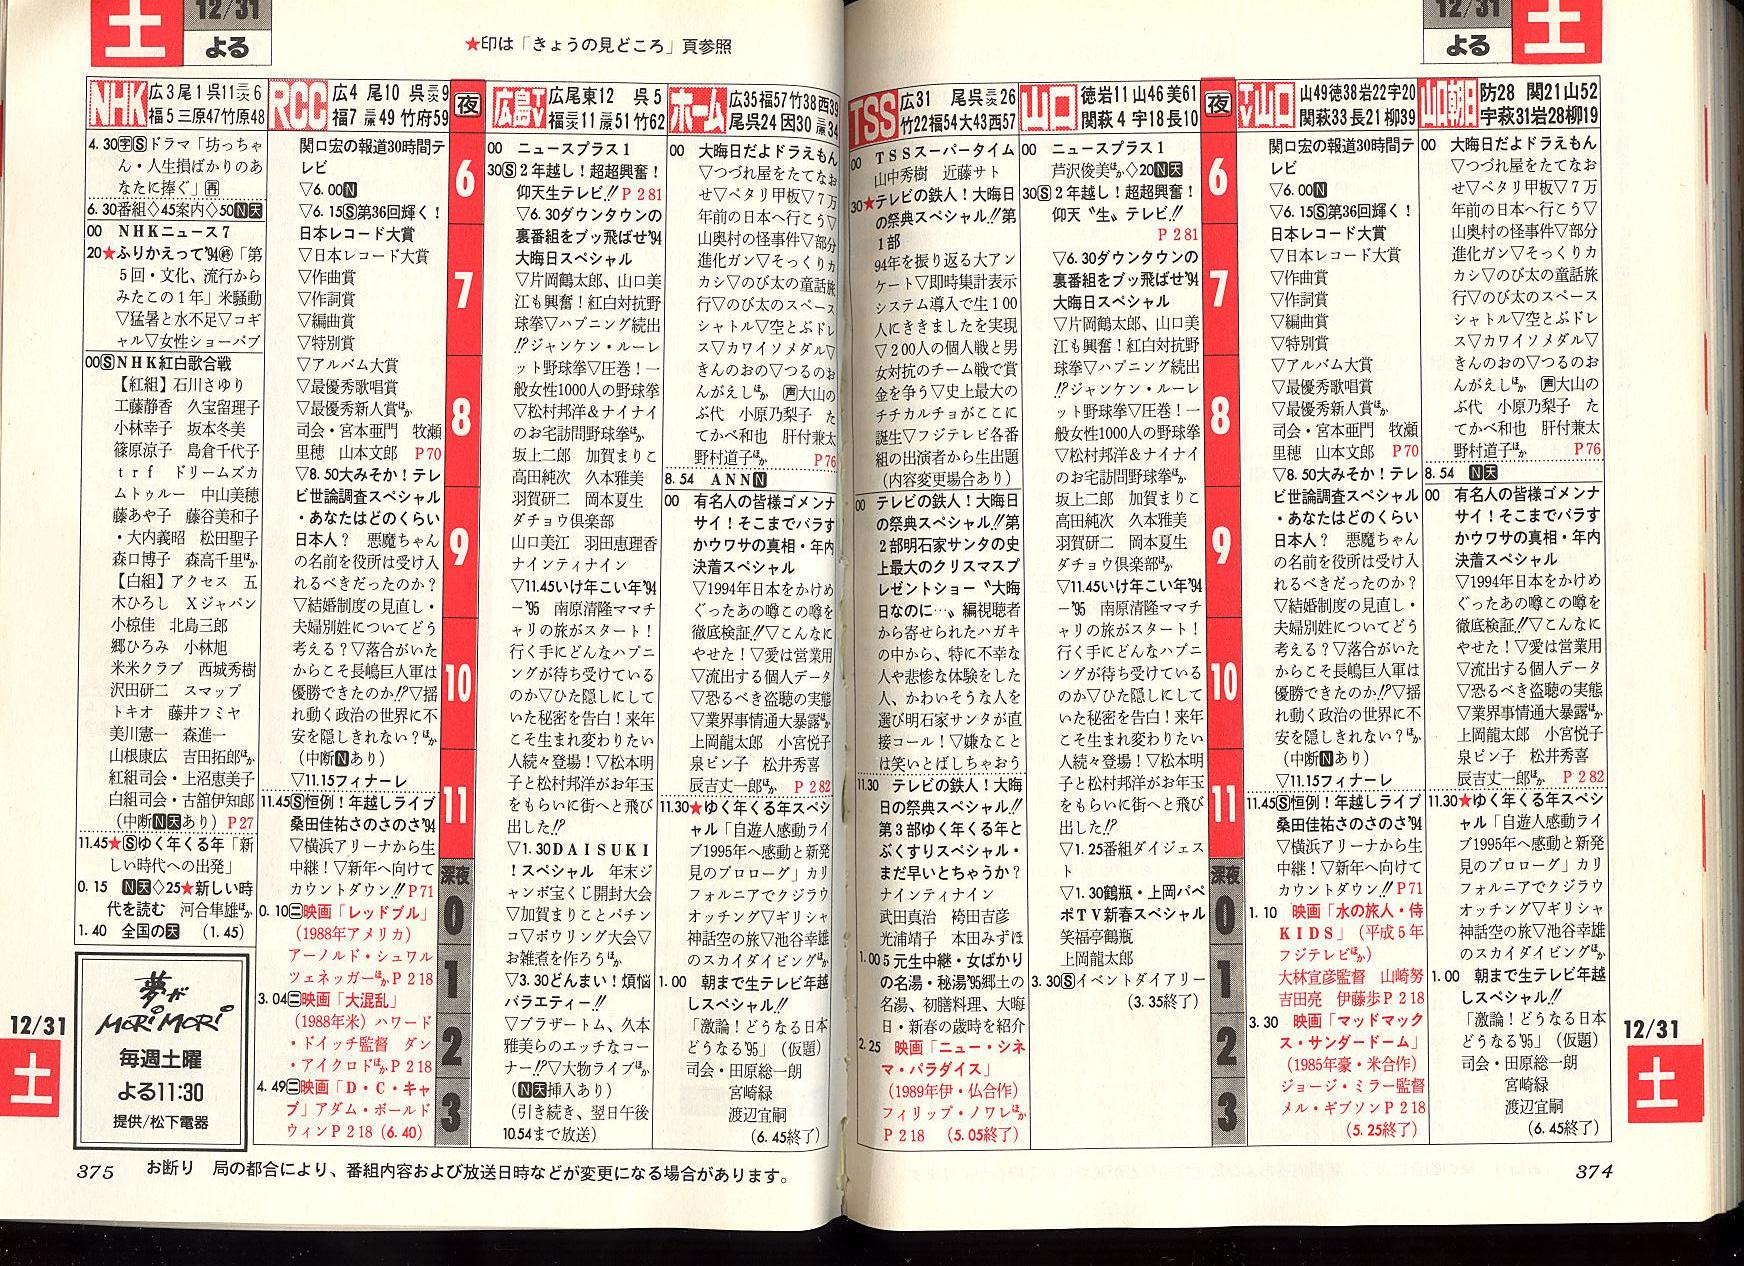 土
12/31
よる
★印は「きょうの見どころ」頁参照
12/31
よる
土
NHK
広3尾1呉11三次6
福5三原47竹原48
4.30字Sドラマ「坊っちゃ
ん・人生損ばかりのあ
なたに捧ぐ」再
6.30番組◇45案内◇50N天
00 NHKニュース7
20★ふりかえって'94終「第
5回・文化、流行から
みたこの1年」米騒動
▽猛暑と水不足▽コギ
ャル▽女性ショーパブ
00SNHK紅白歌合戦
【紅組】石川さゆり
工藤静香 久宝留理子
小林幸子 坂本冬美
篠原涼子 島倉千代子
trf ドリームズカ
ムトゥルー 中山美穂
藤あや子 藤谷美和子
・大内義昭 松田聖子
森口博子 森高千里ほか
【白組】アクセス 五
木ひろし Xジャパン
小椋佳 北島三郎
郷ひろみ 小林旭
米米クラブ 西城秀樹
沢田研二 スマップ
トキオ 藤井フミヤ
美川憲一 森進一
山根康広 吉田拓郎ほか
紅組司会・上沼恵美子
白組司会・古舘伊知郎
(中断N天あり) P27
11.45★Sゆく年くる年「新
しい時代への出発」
0.15 N天◇25★新しい時
代を読む 河合隼雄ほか
1.40 全国の天 (1.45)
夢が
MORIMORI
毎週土曜
よる11:30
提供/松下電器
RCC
広4 尾10 呉三次9
福7 三原49 竹府59
関口宏の報道30時間テ
レビ
▽6.00N
▽6.15S第36回輝く!
日本レコード大賞
▽日本レコード大賞
▽作曲賞
▽作詞賞
▽編曲賞
▽特別賞
▽アルバム大賞
▽最優秀歌唱賞
▽最優秀新人賞ほか
司会・宮本亜門 牧瀬
里穂 山本文郎 P70
▽8.50大みそか!テレ
ビ世論調査スペシャル
・あなたはどのくらい
日本人? 悪魔ちゃん
の名前を役所は受け入
れるべきだったのか?
▽結婚制度の見直し・
夫婦別姓についてどう
考える?▽落合がいた
からこそ長嶋巨人軍は
優勝できたのか!?▽揺
れ動く政治の世界に不
安を隠しきれない?ほか
(中断Nあり)
▽11.15フィナーレ
11.45S恒例!年越しライブ
桑田佳祐さのさのさ'94
▽横浜アリーナから生
中継!▽新年へ向けて
カウントダウン!! P71
0.10二映画「レッドブル」
(1988年アメリカ)
アーノルド・シュワル
ツェネッガーほかP218
3.04二映画「大混乱」
(1988年米)ハワード
・ドイッチ監督 ダン
・アイクロドほかP218
4.49二映画「D・C・キャ
ブ」アダム・ボールド
ウィンP218(6.40)
夜
6
7
8
9
10
11
深夜
0
1
2
3
広島TV
広尾東12 呉5
福三次11 三原51 竹62
00 ニュースプラス1
30S2年越し!超超興奮!
仰天生テレビ!! P281
▽6.30ダウンタウンの
裏番組をブッ飛ばせ'94
大晦日スペシャル
▽片岡鶴太郎、山口美
江も興奮!紅白対抗野
球拳▽ハプニング続出
!?ジャンケン・ルーレ
ット野球拳▽圧巻!一
般女性1000人の野球拳
▽松村邦洋&ナイナイ
のお宅訪問野球拳ほか
坂上二郎 加賀まりこ
高田純次 久本雅美
羽賀研二 岡本夏生
ダチョウ倶楽部
山口美江 羽田恵理香
ナインティナイン
▽11.45いけ年こい年'94
−'95 南原清隆ママチ
ャリの旅がスタート!
行く手にどんなハプニ
ングが待ち受けている
のか▽ひた隠しにして
いた秘密を告白!来年
こそ生まれ変わりたい
人続々登場!▽松本明
子と松村邦洋がお年玉
をもらいに街へと飛び
出した!?
▽1.30DAISUKI
!スペシャル 年末ジ
ャンボ宝くじ開封大会
▽加賀まりことパチン
コ▽ボウリング大会▽
お雑煮を作ろうほか
▽3.30どんまい!煩悩
バラエティー!!
▽ブラザートム、久本
雅美らのエッチなコー
ナー!?▽大物ライブほか
(N天挿入あり)
(引き続き、翌日午後
10.54まで放送)
ホーム
広35福57竹38西39
尾呉24 因30 三原34
00 大晦日だよドラえもん
▽つづれ屋をたてなお
せ▽ペタリ甲板▽7万
年前の日本へ行こう▽
山奥村の怪事件▽部分
進化ガン▽そっくりカ
カシ▽のび太の童話旅
行▽のび太のスペース
シャトル▽空とぶドレ
ス▽カワイソメダル▽
きんのおの▽つるのお
んがえしほか 声大山の
ぶ代 小原乃梨子 た
てかべ和也 肝付兼太
野村道子ほか P76
8.54 ANNN
00 有名人の皆様ゴメンナ
サイ!そこまでバラす
かウワサの真相・年内
決着スペシャル
▽1994年日本をかけめ
ぐったあの噂この噂を
徹底検証!!▽こんなに
やせた!▽愛は営業用
▽流出する個人データ
▽恐るべき盗聴の実態
▽業界事情通大暴露ほか
上岡龍太郎 小宮悦子
泉ピン子 松井秀喜
辰吉丈一郎ほか P282
11.30★ゆく年くる年スペシ
ャル「自遊人感動ライ
ブ1995年へ感動と新発
見のプロローグ」カリ
フォルニアでクジラウ
オッチング▽ギリシャ
神話空の旅▽池谷幸雄
のスカイダイビングほか
1.00 朝まで生テレビ年越
しスペシャル!!
「激論!どうなる日本
どうなる'95」(仮題)
司会・田原総一朗
宮崎緑
渡辺宜嗣
(6.45終了)
TSS
広31 尾呉三次26
竹22福54大43西57
00 TSSスーパータイム
山中秀樹 近藤サト
30★テレビの鉄人!大晦日
の祭典スペシャル!!第
1部
94年を振り返る大アン
ケート▽即時集計表示
システム導入で生100
人にききましたを実現
▽200人の個人戦と男
女対抗のチーム戦で賞
金を争う▽史上最大の
チチカルチョがここに
誕生▽フジテレビ各番
組の出演者から生出題
(内容変更場合あり)
00 テレビの鉄人!大晦日
の祭典スペシャル!!第
2部明石家サンタの史
上最大のクリスマスプ
レゼントショー〝大晦
日なのに…〟編視聴者
から寄せられたハガキ
の中から、特に不幸な
人や悲惨な体験をした
人、かわいそうな人を
選び明石家サンタが直
接コール!▽嫌なこと
は笑いとばしちゃおう
11.30 テレビの鉄人!大晦
日の祭典スペシャル!!
第3部ゆく年くる年と
ぶくすりスペシャル・
まだ早いとちゃうか?
ナインティナイン
武田真治 袴田吉彦
光浦靖子 本田みずほ
1.005元生中継・女ばかり
の名湯・秘湯'95郷土の
名湯、初膳料理、大晦
日・新春の歳時を紹介
2.25 映画「ニュー・シネ
マ・パラダイス」
(1989年伊・仏合作)
フィリップ・ノワレほか
P218 (5.05終了)
山口
徳岩11山46美61
関萩4 宇18長10
00 ニュースプラス1
芦沢俊美ほか◇20N天
30S2年越し!超超興奮!
仰天〝生〟テレビ!!
P281
▽6.30ダウンタウンの
裏番組をブッ飛ばせ'94
大晦日スペシャル
▽片岡鶴太郎、山口美
江も興奮!紅白対抗野
球拳▽ハプニング続出
!?ジャンケン・ルーレ
ット野球拳▽圧巻!一
般女性1000人の野球拳
▽松村邦洋&ナイナイ
のお宅訪問野球拳ほか
坂上二郎 加賀まりこ
高田純次 久本雅美
羽賀研二 岡本夏生
ダチョウ倶楽部ほか
▽11.45いけ年こい年'94
−'95 南原清隆ママチ
ャリの旅がスタート!
行く手にどんなハプニ
ングが待ち受けている
のか▽ひた隠しにして
いた秘密を告白!来年
こそ生まれ変わりたい
人続々登場!▽松本明
子と松村邦洋がお年玉
をもらいに街へと飛び
出した!?
▽1.25番組ダイジェス
ト
▽1.30鶴瓶・上岡パペ
ポTV新春スペシャル
笑福亭鶴瓶
上岡龍太郎
3.30Sイベントダイアリー
(3.35終了)
夜
6
7
8
9
10
11
深夜
0
1
2
3
TV山口
山49徳38岩22宇20
関萩33長21柳39
関口宏の報道30時間テ
レビ
▽6.00N
▽6.15S第36回輝く!
日本レコード大賞
▽日本レコード大賞
▽作曲賞
▽作詞賞
▽編曲賞
▽特別賞
▽アルバム大賞
▽最優秀歌唱賞
▽最優秀新人賞ほか
司会・宮本亜門 牧瀬
里穂 山本文郎 P70
▽8.50大みそか!テレ
ビ世論調査スペシャル
・あなたはどのくらい
日本人? 悪魔ちゃん
の名前を役所は受け入
れるべきだったのか?
▽結婚制度の見直し・
夫婦別姓についてどう
考える?▽落合がいた
からこそ長嶋巨人軍は
優勝できたのか!?▽揺
れ動く政治の世界に不
安を隠しきれない?ほか
(中断Nあり)
▽11.15フィナーレ
11.45S恒例!年越しライブ
桑田佳祐さのさのさ'94
▽横浜アリーナから生
中継!▽新年へ向けて
カウントダウン!! P71
1.10 映画「水の旅人・侍
KIDS」(平成5年
フジテレビほか)
大林宣彦監督 山崎努
吉田亮 伊藤歩P218
3.30 映画「マッドマック
ス・サンダードーム」
(1985年豪・米合作)
ジョージ・ミラー監督
メル・ギブソンP218
(5.25終了)
山口朝日
防28 関21山52
宇萩31岩28柳19
00 大晦日だよドラえもん
▽つづれ屋をたてなお
せ▽ペタリ甲板▽7万
年前の日本へ行こう▽
山奥村の怪事件▽部分
進化ガン▽そっくりカ
カシ▽のび太の童話旅
行▽のび太のスペース
シャトル▽空とぶドレ
ス▽カワイソメダル▽
きんのおの▽つるのお
んがえしほか 声大山の
ぶ代 小原乃梨子 た
てかべ和也 肝付兼太
野村道子ほか P76
8.54 N天
00 有名人の皆様ゴメンナ
サイ!そこまでバラす
かウワサの真相・年内
決着スペシャル
▽1994年日本をかけめ
ぐったあの噂この噂を
徹底検証!!▽こんなに
やせた!▽愛は営業用
▽流出する個人データ
▽恐るべき盗聴の実態
▽業界事情通大暴露ほか
上岡龍太郎 小宮悦子
泉ピン子 松井秀喜
辰吉丈一郎ほか P282
11.30★ゆく年くる年スペシ
ャル「自遊人感動ライ
ブ1995年へ感動と新発
見のプロローグ」カリ
フォルニアでクジラウ
オッチング▽ギリシャ
神話空の旅▽池谷幸雄
のスカイダイビングほか
1.00 朝まで生テレビ年越
しスペシャル!!
「激論!どうなる日本
どうなる'95」(仮題)
司会・田原総一朗
宮崎緑
渡辺宜嗣
(6.45終了)
12/31
土
12/31
土
375
お断り 局の都合により、番組内容および放送日時などが変更になる場合があります。
374